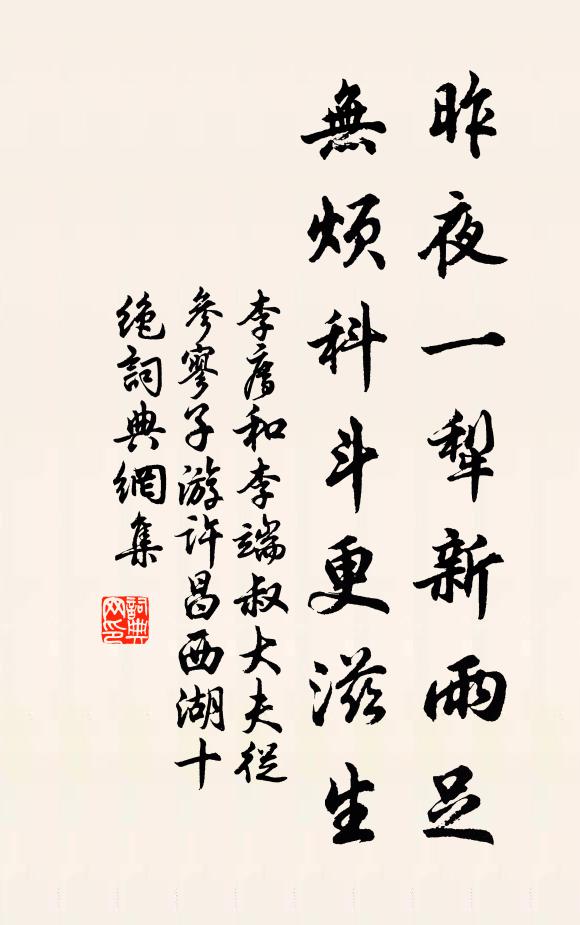 昨夜一犁新雨足
無煩科斗更滋生
李廌和李端叔大夫從
參寥子游許昌西湖十
絕詞典網集
詞典网印